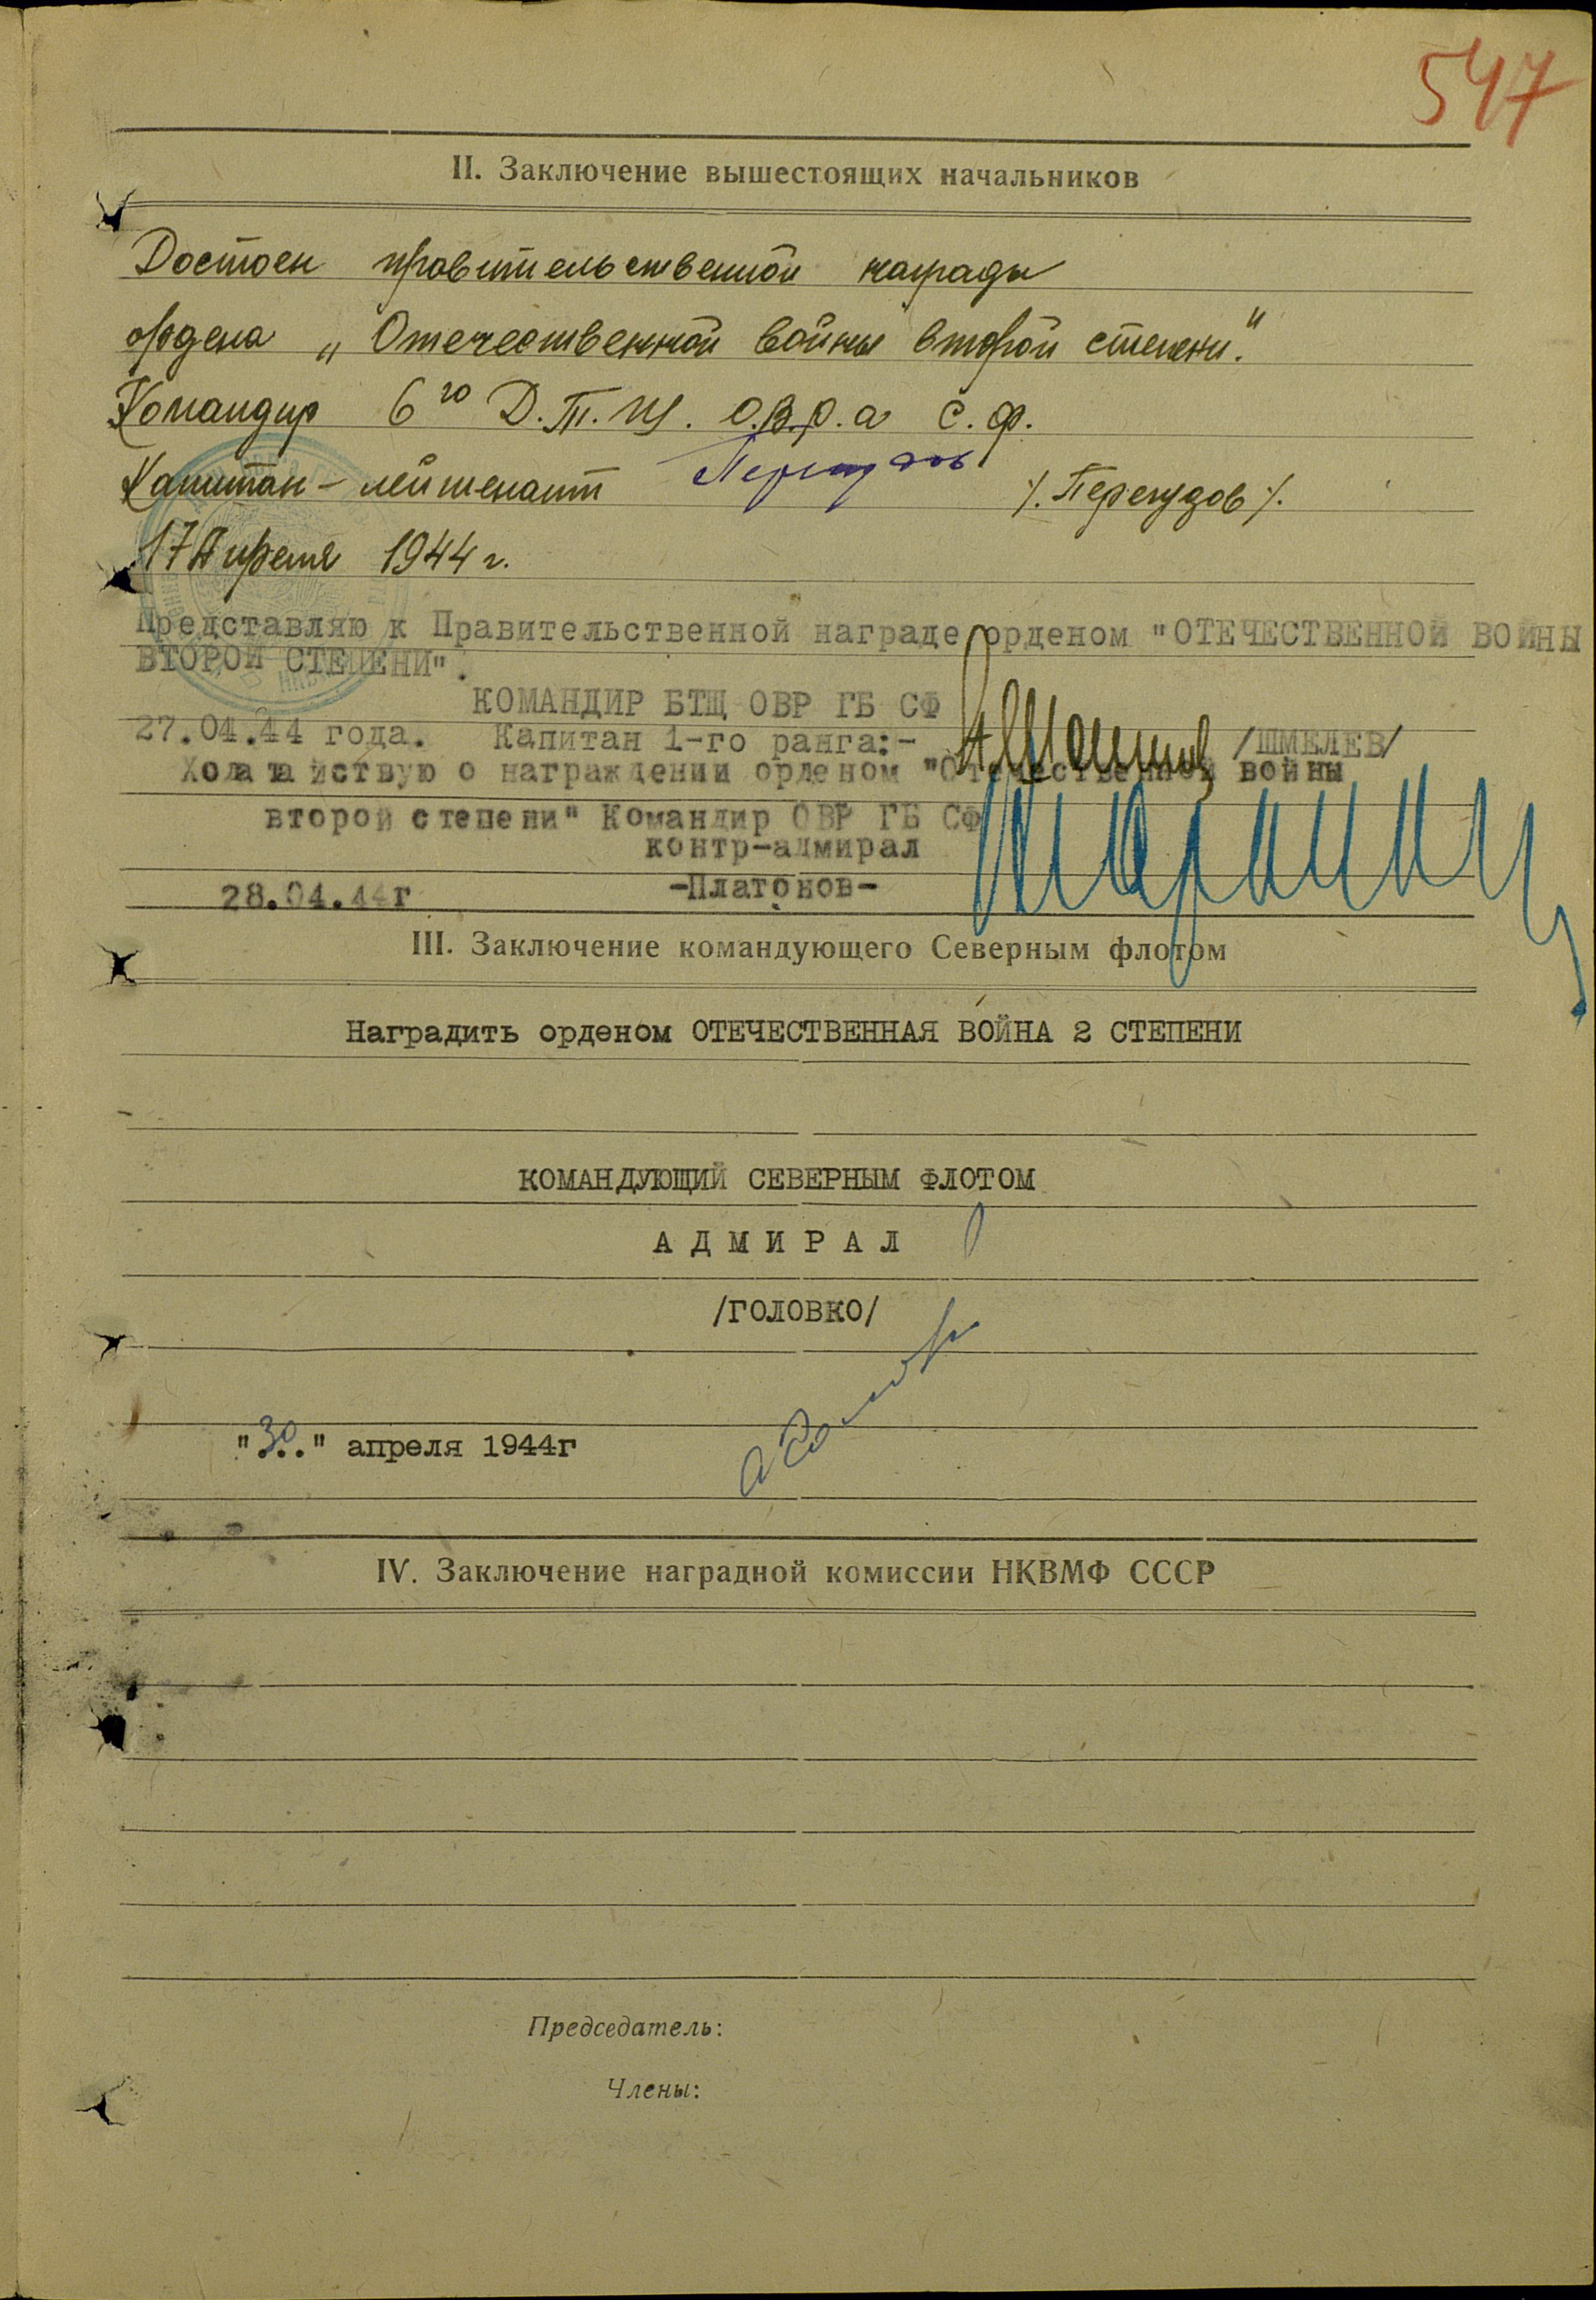 547
II. Заключение вышестоящих начальников
Достоен правительственной награды
ордена „Отечественной войны второй степени".
Командир 6го Д.Т.Щ. О.В.Р.а С.Ф.
Капитан-лейтенант /.Перегудов/.
17 Апреля 1944 г.
Представляю к Правительственной награде орденом "ОТЕЧЕСТВЕННОЙ ВОЙНЫ
ВТОРОЙ СТЕПЕНИ".
КОМАНДИР БТЩ ОВР ГБ СФ
27.04.44 года. Капитан 1-го ранга:- /ШМЕЛЕВ/
Ходатайствую о награждении орденом "Отечественной войны
второй степени" Командир ОВР ГБ СФ
контр-адмирал
28.04.44г -Платонов-
III. Заключение командующего Северным флотом
Наградить орденом ОТЕЧЕСТВЕННАЯ ВОЙНА 2 СТЕПЕНИ
КОМАНДУЮЩИЙ СЕВЕРНЫМ ФЛОТОМ
АДМИРАЛ
/ГОЛОВКО/
"30.." апреля 1944г
IV. Заключение наградной комиссии НКВМФ СССР
Председатель:
Члены: